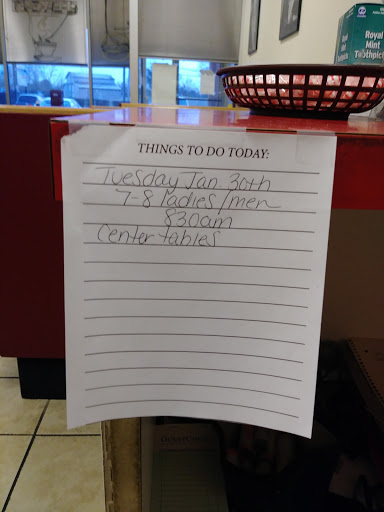 Royal
Mint
Toothpicks
THINGS TO DO TODAY:
Tuesday Jan 30th
7-8 ladies/men
830am
Center tables